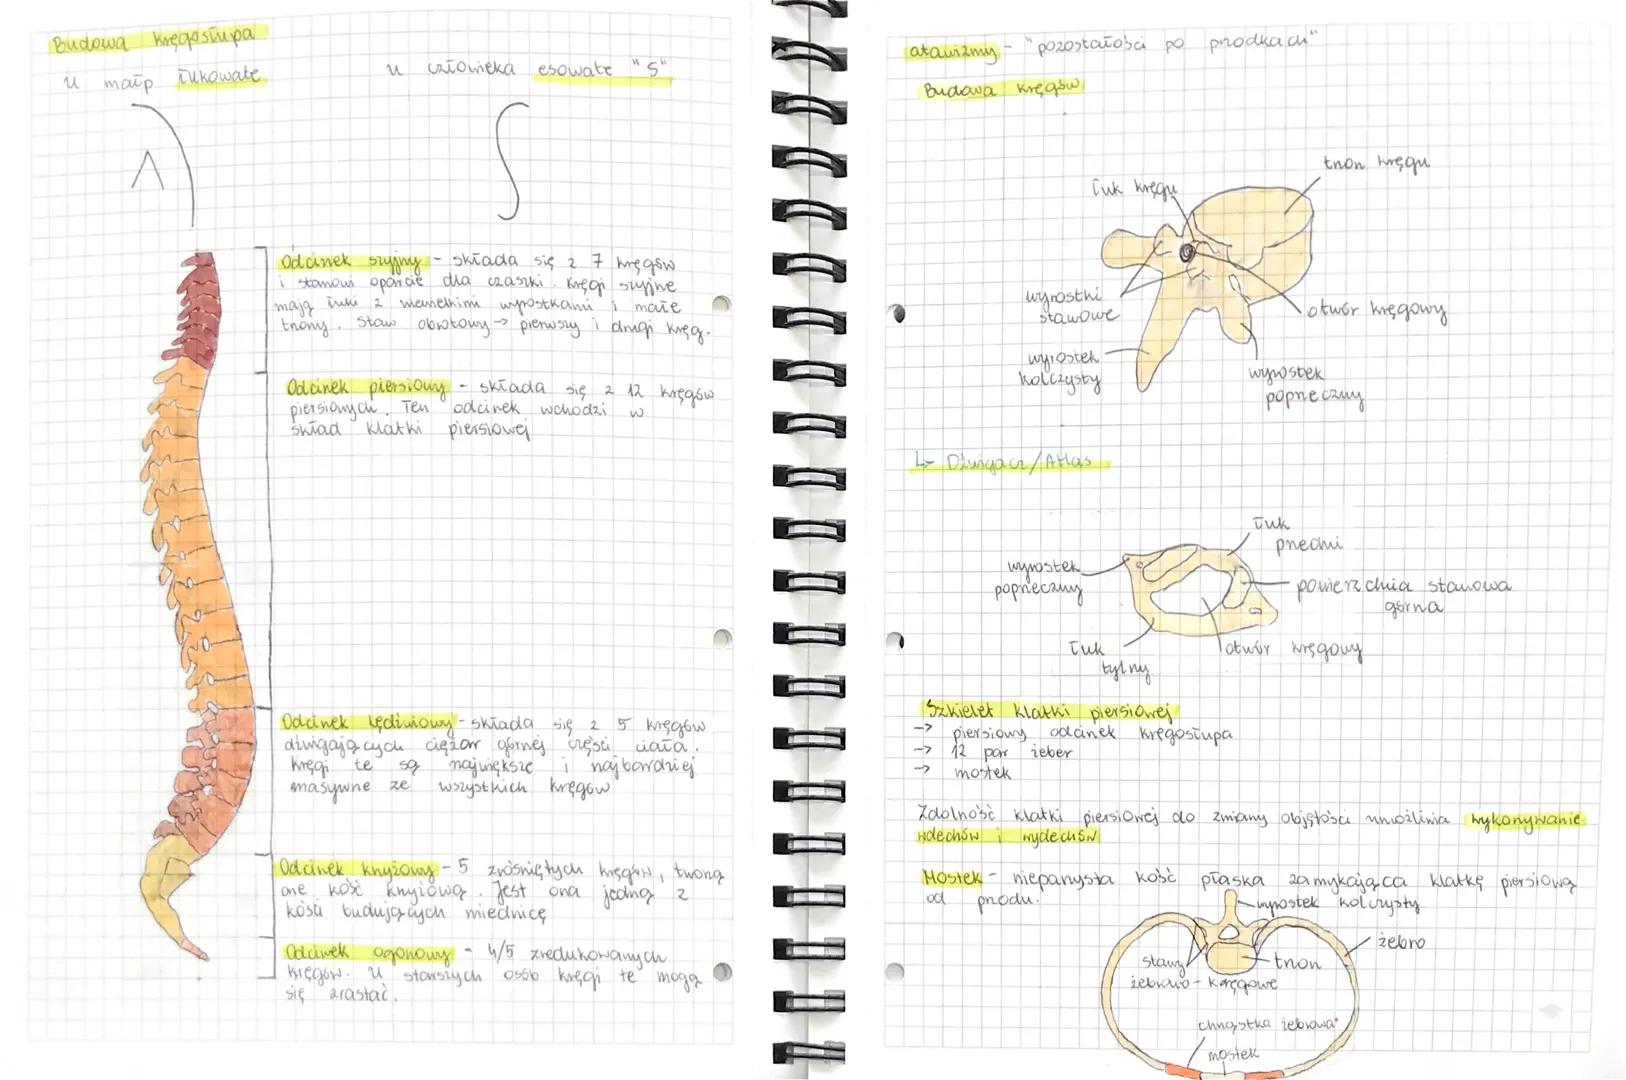 Budowa kręgosłupa
u małp łukowate
u człowieka esowate "S"
Odcinek szyjny - składa się z 7 kręgów
i stanowi oparcie dla czaszki. Kręgi szyjne
mają łuki z niewielkimi wyrostkami i małe
trzony. Staw obrotowy → pierwszy i drugi kręg.
Odcinek piersiowy - składa się z 12 kręgów
piersiowych. Ten odcinek wchodzi w
skład klatki piersiowej
Odcinek lędźwiowy - składa się z 5 kręgów
dźwigających ciężar górnej części ciała.
Kręgi te są największe i najbardziej
masywne ze wszystkich kręgów
Odcinek krzyżowy - 5 zrośniętych kręgów, tworzą
one kość krzyżową. Jest ona jedną z
kości budujących miednicę
Odcinek ogonowy - 4/5 zredukowanych
kręgów. U starszych osób kręgi te mogą
się zrastać.
atawizmy - "pozostałości po przodkach"
Budowa kręgów
trzon kręgu
łuk kręgu
wyrostki
stawowe
otwór kręgowy
wyrostek
kolczysty
wyrostek
poprzeczny
↳ Dźwigacz/Atlas
łuk
przedni
wyrostek
poprzeczny
powierzchnia stawowa
górna
łuk
tylny
otwór kręgowy
Szkielet klatki piersiowej
→ piersiowy odcinek kręgosłupa
→ 12 par żeber
→ mostek
Zdolność klatki piersiowej do zmiany objętości umożliwia wykonywanie
wdechów i wydechów
Mostek - nieparzysta kość płaska zamykająca klatkę piersiową
od przodu.
wyrostek kolczysty
żebro
stawy
trzon
żebrowo - kręgowe
chrząstka żebrowa
mostek